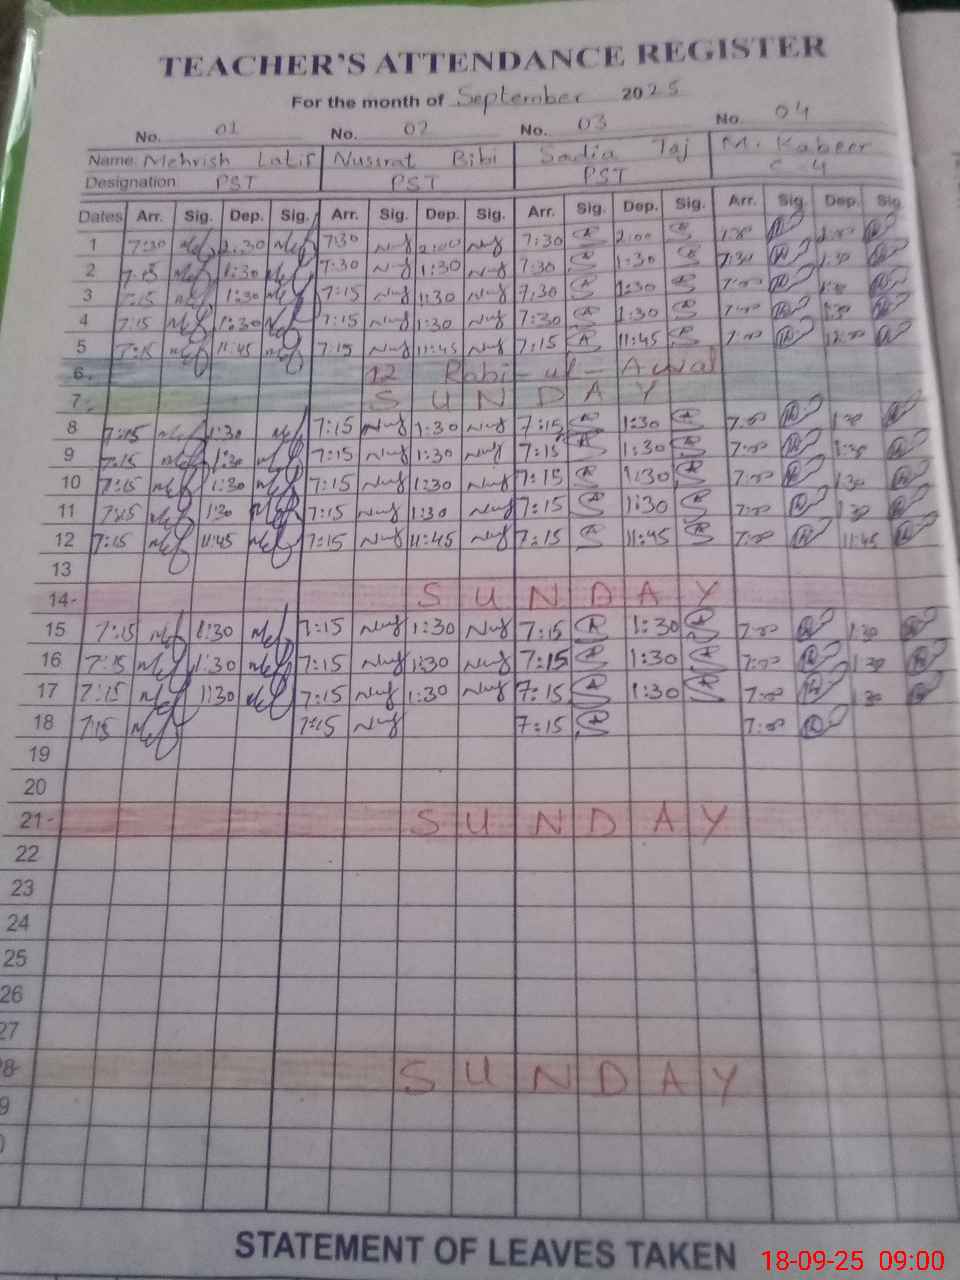 TEACHER'S ATTENDANCE REGISTER
For the month of September 2025
No. 01 No. 02 No. 03 No. 04
Name: Mehrish Latif Nusrat Bibi Sadia Taj M. Kabeer
Designation PST PST PST C-4
Dates Arr. Sig. Dep. Sig. Arr. Sig. Dep. Sig. Arr. Sig. Dep. Sig. Arr. Sig. Dep. Sig.
1 7:30 2:30 7:30 2:00 7:30 2:00
2 7:15 1:30 7:30 1:30 7:30 1:30 7:30 1:30
3 7:15 1:30 7:15 1:30 7:30 1:30 7:00
4 7:15 1:30 7:15 1:30 7:30 1:30 7:00 1:30
5 7:15 11:45 7:15 11:45 7:15 11:45 7:00 12:00
6. 12 Rabi-ul-Awal
7. SUNDAY
8 7:15 1:30 7:15 1:30 7:15 1:30 7:00 1:30
9 7:15 1:30 7:15 1:30 7:15 1:30 7:00 1:30
10 7:15 1:30 7:15 1:30 7:15 1:30 7:00 1:30
11 7:15 1:30 7:15 1:30 7:15 1:30 7:00 1:30
12 7:15 11:45 7:15 11:45 7:15 11:45 7:00 11:45
13
14- SUNDAY
15 7:15 1:30 7:15 1:30 7:15 1:30 7:00 1:30
16 7:15 1:30 7:15 1:30 7:15 1:30 7:00 1:30
17 7:15 1:30 7:15 1:30 7:15 1:30 7:00 1:30
18 7:15 7:15 7:15 7:00
19
20
21- SUNDAY
22
23
24
25
26
27
8- SUNDAY
9
STATEMENT OF LEAVES TAKEN
18-09-25 09:00